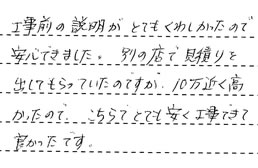 工事前の説明がとてもくわしかったので
安心できました。別の店で見積りを
出してもらっていたのですが、10万近く高
かったので、こちらでとても安く工事できて
良かったです。